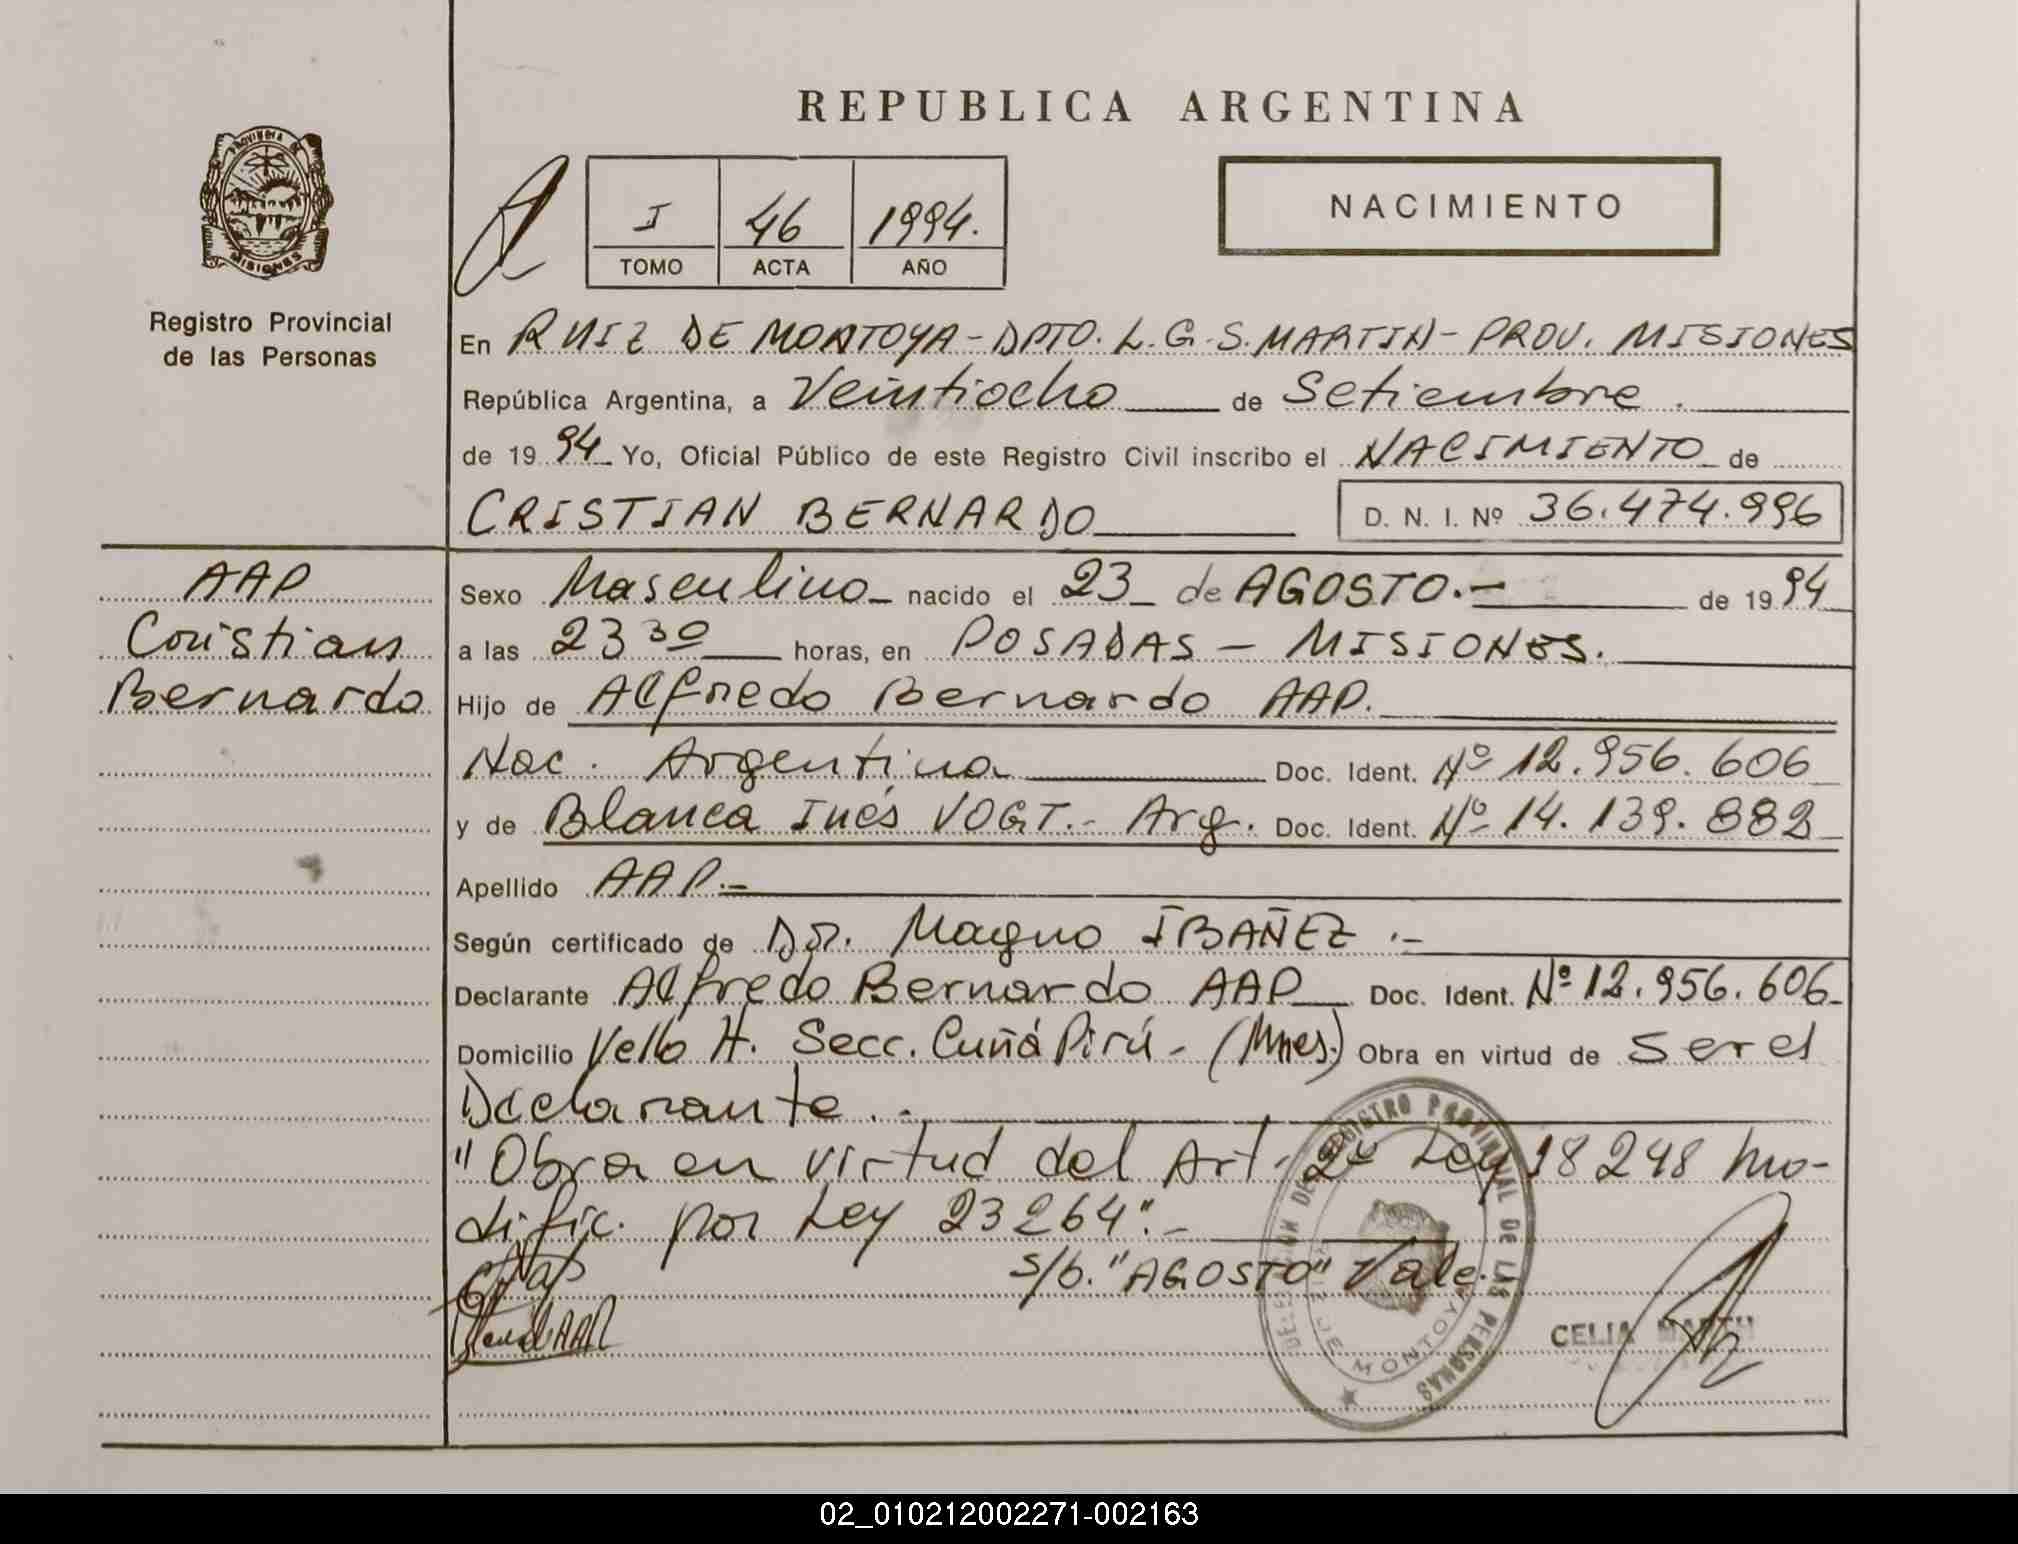 REPUBLICA ARGENTINA
PROVINCIA DE
MISIONES
Registro Provincial
de las Personas
I 46 1994.
TOMO ACTA AÑO
NACIMIENTO
En RUIZ DE MONTOYA - DPTO. L. G. S. MARTIN - PROV. MISIONES
República Argentina, a Veintiocho de Setiembre.
de 19 94 Yo, Oficial Público de este Registro Civil inscribo el NACIMIENTO de
CRISTIAN BERNARDO D. N. I. Nº 36.474.996
AAP
Cristian
Bernardo
Sexo Masculino nacido el 23 de AGOSTO.- de 19 94
a las 23 30 horas, en POSADAS - MISIONES.
Hijo de Alfredo Bernardo AAP.
Nac. Argentina Doc. Ident. Nº 12.956.606
y de Blanca Inés VOGT.- Arg. Doc. Ident. Nº 14.139.882
Apellido AAP.-
Según certificado de Dr. Magno IBAÑEZ.-
Declarante Alfredo Bernardo AAP Doc. Ident. Nº 12.956.606
Domicilio Vello H. Secc. Cuñá Pirú - (Mnes.) Obra en virtud de ser el
Declarante.-
"Obra en virtud del Art. 2º Ley 18248 mo-
dific. por Ley 23264".-
s/b. "AGOSTO" Vale.
REGISTRO PROVINCIAL DE LAS PERSONAS
DE MONTOYA
CELIA
02_010212002271-002163